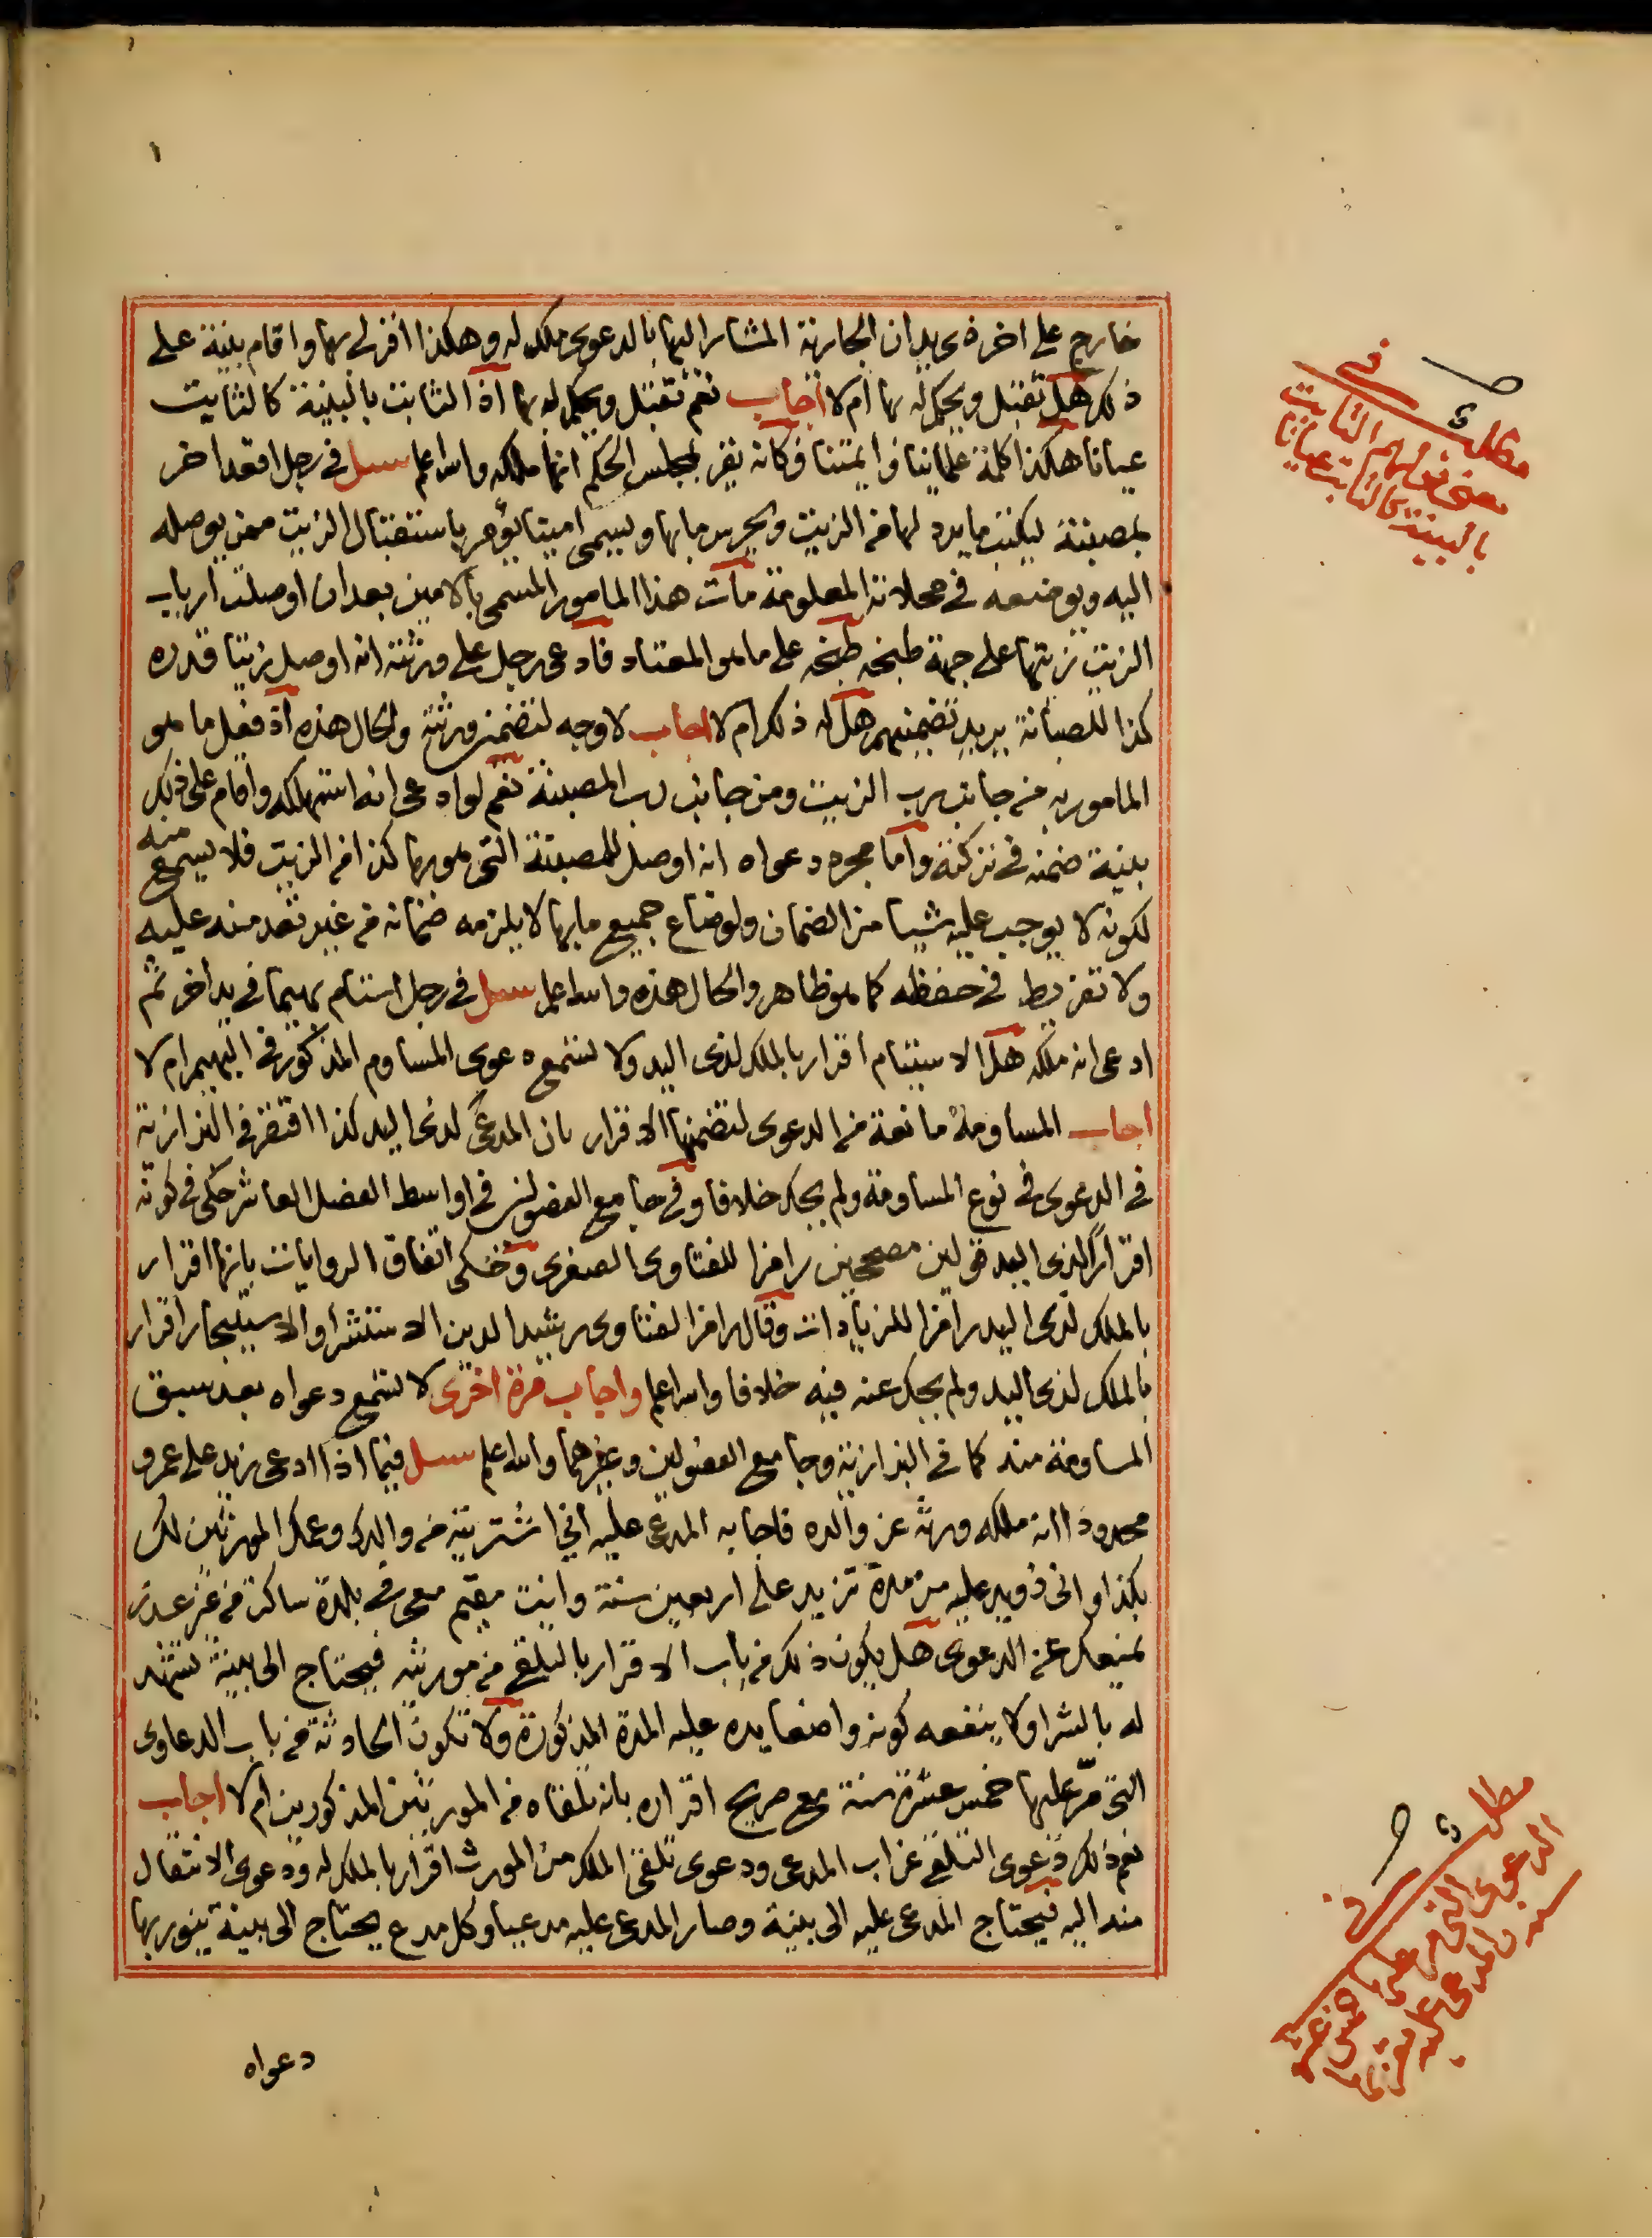 خارج على اخر ذى يد ان الجارية المشار اليها بالدعوى ملك له وهكذا اقر لى بها واقام بينة على
ذلك هل تقبل ويحكم له بها ام لا اجاب نعم تقبل ويحكم له بها اذ الثابت بالبينة كالثابت
عيانا هكذا كلمة علمائنا وائمتنا فكانه يقر بمجلس الحكم انها ملكه والله اعلم سئل فى رجل اقعد اخر
بمصبنة ليكتب ما يرد لها من الزيت ويحرس ما بها ويسمى امينا يؤمر باستقبال الزيت ممن يوصله
اليه ويوضعه فى محلاته المعلومة مات هذا المامور المسمى بالامين بعد ان اوصلت ارباب
الزيت زيتها على جهة طبخه طبخه على ما هو المعتاد فادعى رجل على ورثته انه اوصل زيتا قدره
كذا للصبانة يريد تضمينهم هل له ذلك ام لا اجاب لا وجه لتضمين ورثته والحال هذه اذ فعل ما هو
المامور به من جانب رب الزيت ومن جانب رب المصبنة نعم لو ادعى انه استهلكه واقام على ذلك
بينة ضمنه فى تركته واما مجرد دعواه انه اوصل للمصبنة التى هو بها كذا من الزيت فلا يسمع منه
لكونه لا يوجب عليه شيا من الضمان ولو ضاع جميع ما بها لا يلزمه ضمانه من غير تعد منه عليه
ولا تفريط فى حفظه كما هو ظاهر والحال هذه والله اعلم سئل فى رجل استام بهيما فى يد اخر ثم
ادعى انه ملكه هل الاستيام اقرار بالملك لذى اليد ولا تسمع دعوى المساوم المذكور فى البهيم ام لا
اجاب المساومة مانعة من الدعوى لتضمنها الاقرار بان المدعى لذى اليد كذا اقتصر فى البزازية
فى الدعوى فى نوع المساومة ولم يحك خلافا وفى جامع الفصولين فى اواسط الفصل العاشر حكى فى كونه
اقرارا لذى اليد قولين مصححين رامزا للفتاوى الصغرى وحكى اتفاق الروايات بانها اقرار
بالملك لذى اليد رامزا للزيادات وقال رامزا لفتاوى رشيد الدين الاستشرا والاستيجار اقرار
بالملك لذى اليد ولم يحك عنه فيه خلافا والله اعلم واجاب مرة اخرى لا تسمع دعواه بعد سبق
المساومة منه كما فى البزازية وجامع الفصولين وغيرهما والله اعلم سئل فيما اذا ادعى زيد على عمرو
محدودا انه ملكه ورثه عن والده فاجابه المدعى عليه انى اشتريته من والدك وعمك المورثين لك
بكذا وانى ذو يد عليه من مدة تزيد على اربعين سنة وانت مقيم معى فى بلدة ساكت من غير عذر
يمنعك عن الدعوى هل يكون ذلك من باب الاقرار بالتلقى من مورثه فيحتاج الى بينة تشهد
له بالشرا ولا ينفعه كونه واضعا يده عليه المدة المذكورة ولا تكون الحادثة من باب الدعاوى
التى مر عليها خمس عشرة سنة مع صريح اقراره بانه تلقاه من المورثين المذكورين ام لا اجاب
نعم ذلك دعوى التلقى عن اب المدعى ودعوى تلقى الملك من المورث اقرار بالملك له ودعوى الانتقال
منه اليه فيحتاج المدعى عليه الى بينة وصار المدعى عليه مدعيا وكل مدع يحتاج الى بينة ينور بها
دعواه
مطلب فى
معنى قولهم الثابت
بالبينة كالثابت عيانا
مطلب فى
الدعوى التى مر عليها خمس عشرة
سنة